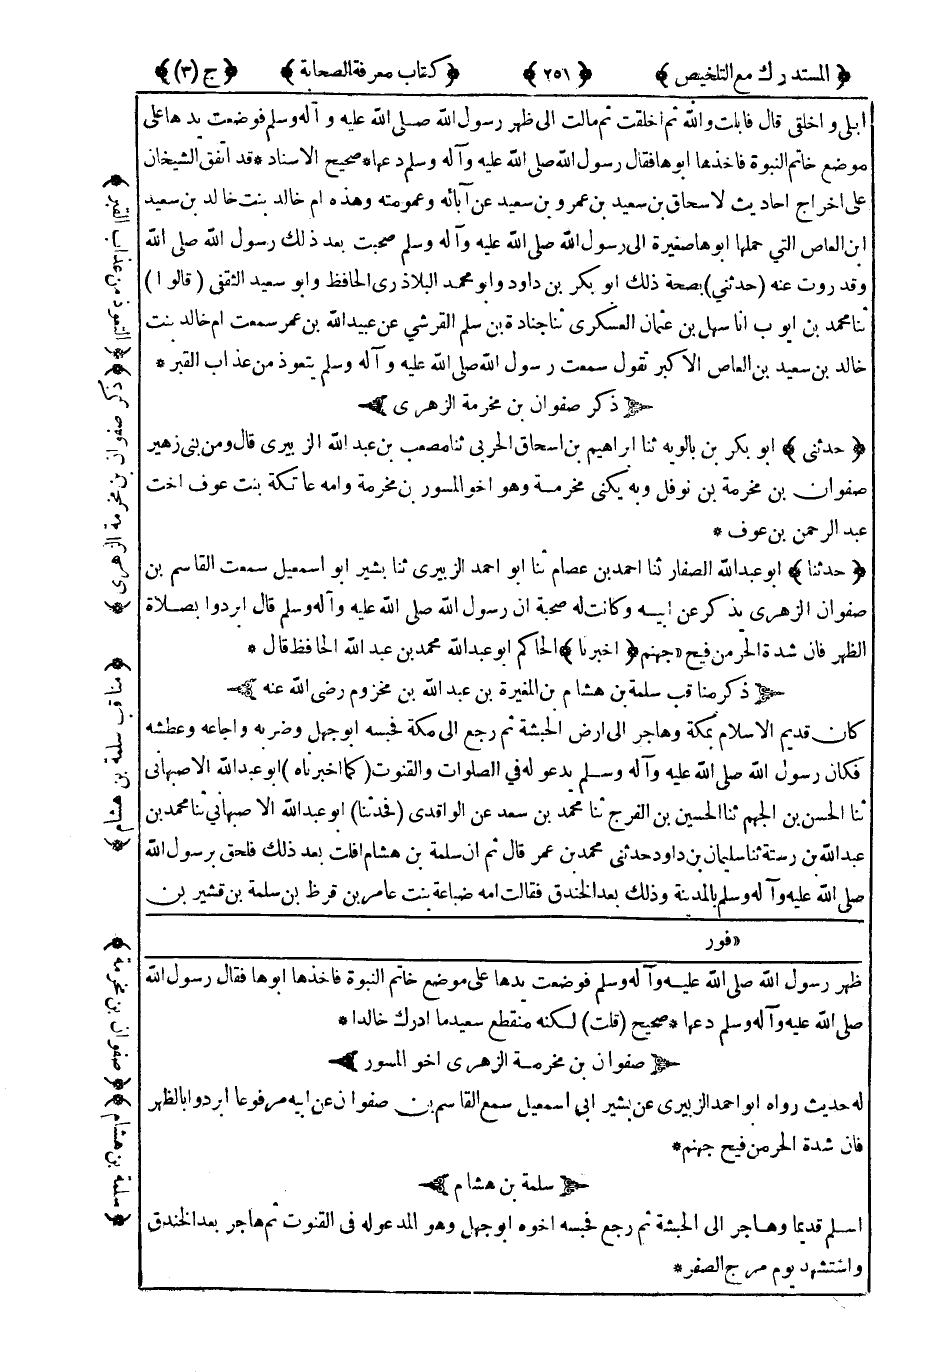 ﴿ المستدرك مع التلخيص ﴾ ﴿ ٢٥١ ﴾ ﴿ كتاب معرفة الصحابة ﴾ ﴿ ج (٣) ﴾
ابلى واخلقى قال فابلت والله ثم اخلقت ثم مالت الى ظهر رسول الله صلى الله عليه وآله وسلم فوضعت يدها على
موضع خاتم النبوة فاخذها ابوها فقال رسول الله صلى الله عليه وآله وسلم دعها * صحيح الاسناد * قد اتفق الشيخان
على اخراج احاديث لاسحاق بن سعيد بن عمرو بن سعيد عن آبائه وعمومته وهذه ام خالد بنت خالد بن سعيد
ابن العاص التي حملها ابوها صغيرة الى رسول الله صلى الله عليه وآله وسلم صحبت بعد ذلك رسول الله صلى الله
وقد روت عنه (حدثني) بصحة ذلك ابو بكر بن داود وابو محمد البلاذرى الحافظ وابو سعيد الثقفى (قالوا)
ثنا محمد بن ايوب انا سهل بن عثمان العسكرى ثنا جنادة بن سلم القرشي عن عبيد الله بن عمر سمعت ام خالد بنت
خالد بن سعيد بن العاص الأكبر تقول سمعت رسول الله صلى الله عليه وآله وسلم يتعوذ من عذاب القبر *
ذكر صفوان بن مخرمة الزهرى
﴿ حدثنى ﴾ ابو بكر بن بالويه ثنا ابراهيم بن اسحاق الحربى ثنا مصعب بن عبد الله الزبيرى قال ومن بنى زهير
صفوان بن مخرمة بن نوفل وبه يكنى مخرمة وهو اخو المسور بن مخرمة وامه عاتكة بنت عوف اخت
عبد الرحمن بن عوف *
﴿ حدثنا ﴾ ابو عبد الله الصفار ثنا احمد بن عصام ثنا ابو احمد الزبيرى ثنا بشير ابو اسمعيل سمعت القاسم بن
صفوان الزهرى يذكر عن ابيه وكانت له صحبة ان رسول الله صلى الله عليه وآله وسلم قال ابردوا بصلاة
الظهر فان شدة الحر من فيح «جهنم ﴿ اخبرنا ﴾ الحاكم ابو عبد الله محمد بن عبد الله الحافظ قال *
ذكر مناقب سلمة بن هشام بن المغيرة بن عبد الله بن مخزوم رضى الله عنه
كان قديم الاسلام بمكة وهاجر الى ارض الحبشة ثم رجع الى مكة فحبسه ابو جهل وضربه واجاعه وعطشه
فكان رسول الله صلى الله عليه وآله وسلم يدعو له في الصلوات والقنوت (كما اخبرناه) ابو عبد الله الاصبهانى
ثنا الحسن بن الجهم ثنا الحسين بن الفرج ثنا محمد بن سعد عن الواقدى (فحدثنا) ابو عبد الله الاصبهاني ثنا محمد بن
عبد الله بن رستة ثنا سليمان بن داود حدثني محمد بن عمر قال ثم ان سلمة بن هشام افلت بعد ذلك فلحق برسول الله
صلى الله عليه وآله وسلم بالمدينة وذلك بعد الخندق فقالت امه ضباعة بنت عامر بن قرظ بن سلمة بن قشير بن
«فور
ظهر رسول الله صلى الله عليه وآله وسلم فوضعت يدها على موضع خاتم النبوة فاخذها ابوها فقال رسول الله
صلى الله عليه وآله وسلم دعها * صحيح (قلت) لكنه منقطع سعيد ما ادرك خالدا *
صفوان بن مخرمة الزهرى اخو المسور
له حديث رواه ابو احمد الزبيرى عن بشير ابى اسمعيل سمع القاسم بن صفوان عن ابيه مرفوعا ابردوا بالظهر
فان شدة الحر من فيح جهنم *
سلمة بن هشام
اسلم قديما وهاجر الى الحبشة ثم رجع فحبسه اخوه ابو جهل وهو المدعو له فى القنوت ثم هاجر بعد الخندق
واستشهد يوم مرج الصفر *
﴿ التعوذ من عذاب القبر ﴾
﴿ ذكر صفوان بن مخرمة الزهرى ﴾
﴿ مناقب سلمة بن هشام ﴾
﴿ صفوان بن مخرمة ﴾
﴿ سلمة بن هشام ﴾